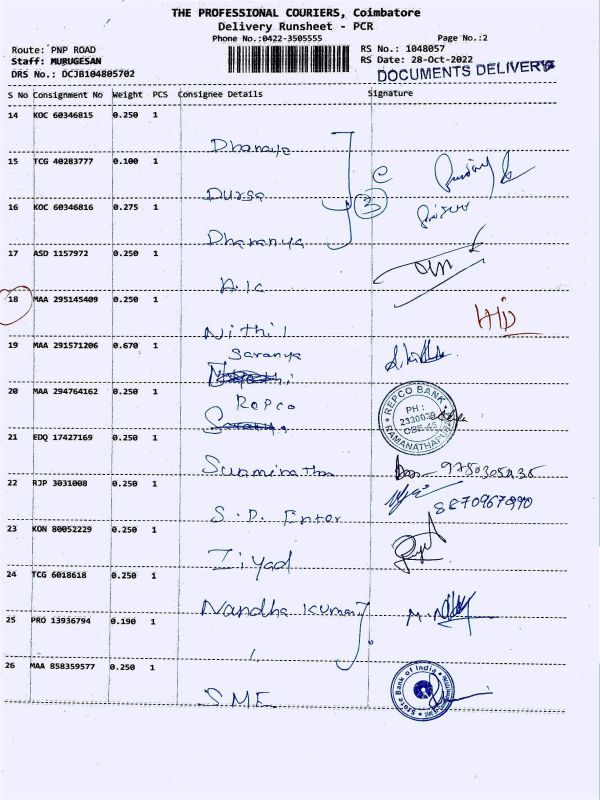 THE PROFESSIONAL COURIERS, Coimbatore
Delivery Runsheet - PCR
Phone No.:0422-3505555 Page No.:2
Route: PNP ROAD RS No.: 1048057
Staff: MURUGESAN RS Date: 28-Oct-2022
DRS No.: DCJB104805702 DOCUMENTS DELIVERY
S No Consignment No Weight PCS Consignee Details Signature
14 KOC 60346815 0.250 1
Dhanaya
15 TCG 40283777 0.100 1
Durga
16 KOC 60346816 0.275 1
3
Dharanya
17 ASD 1157972 0.250 1
A.1c
18 MAA 295145409 0.250 1
Nithil
19 MAA 291571206 0.670 1
Saranya
20 MAA 294764162 0.250 1
Repco
REPCO BANK
PH:
2320038
CBE-45
RAMANATHAPURAM
21 EDQ 17427169 0.250 1
22 RJP 3031008 0.250 1
S.D. Enter
23 KON 80052229 0.250 1
Ziyad
24 TCG 6018618 0.250 1
Nandha Kumar
25 PRO 13936794 0.190 1
26 MAA 858359577 0.250 1
SME
State Bank of India